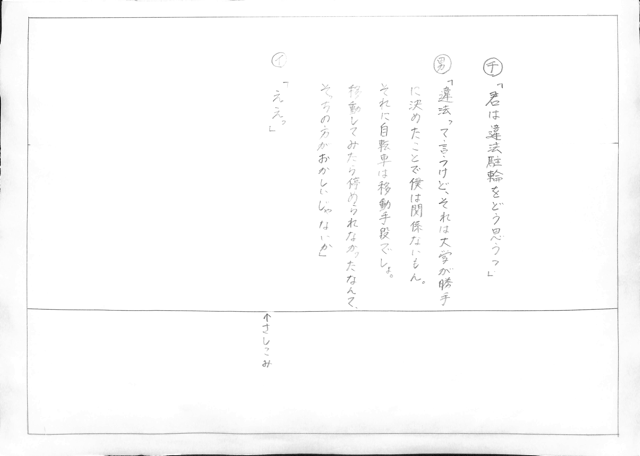 チ「君は違法駐輪をどう思う?」
男「違法?て言うけど、それは大学が勝手
に決めたことで僕は関係ないもん。
それに自転車は移動手段でしょ。
移動してみたら停められなかったなんて、
そっちの方がおかしいじゃないか」
イ「ええっ」
↑さしこみ